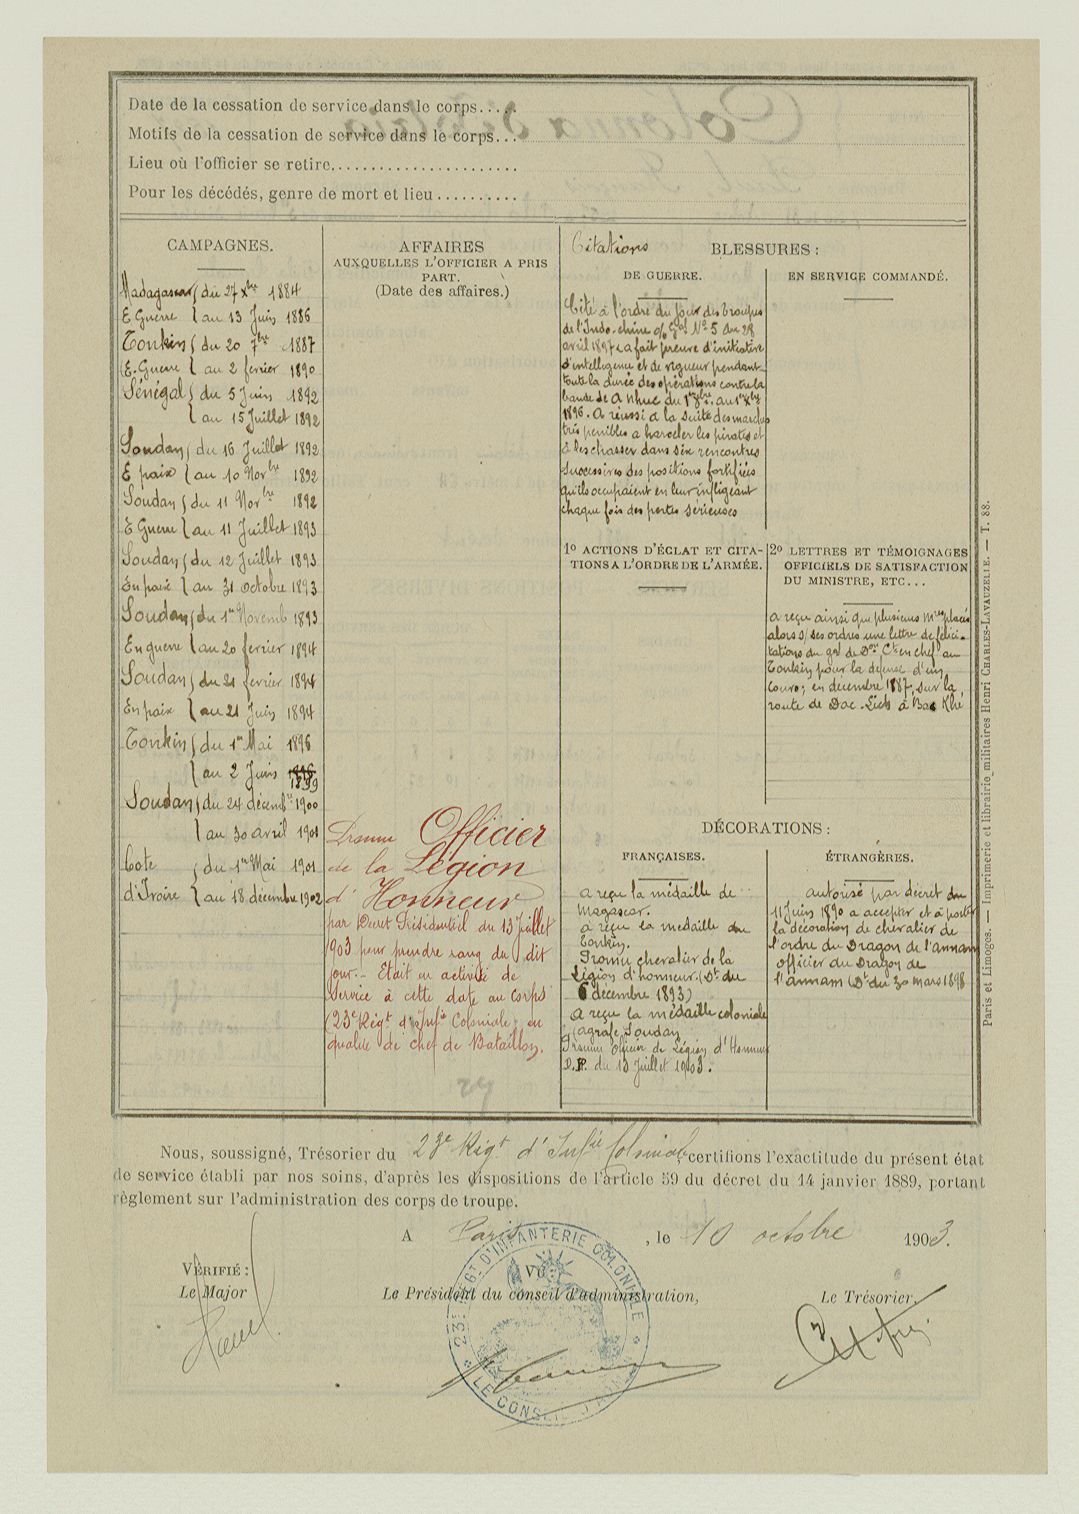 Date de la cessation de service dans le corps.....
Motifs de la cessation de service dans le corps...
Lieu où l'officier se retire......................
Pour les décédés, genre de mort et lieu..........
CAMPAGNES.
Madagascar du 27 Xbre 1884
E Guerre au 13 Juin 1886
Tonkin du 20 7bre 1887
E. Guerre au 2 fevrier 1890
Sénégal du 5 Juin 1892
au 15 Juillet 1892
Soudan du 16 Juillet 1892
E paix au 10 Novbre 1892
Soudan du 11 Novbre 1892
E Guerre au 11 Juillet 1893
Soudan du 12 Juillet 1893
En paix au 31 octobre 1893
Soudan du 1er Novemb 1893
En guerre au 20 fevrier 1894
Soudan du 21 fevrier 1894
En paix au 21 Juin 1894
Tonkin du 1er Mai 1896
au 2 Juin 1899
Soudan du 24 décembre 1900
au 30 avril 1901
Cote du 1er Mai 1901
d'Ivoire au 18 décembre 1902
AFFAIRES
AUXQUELLES L'OFFICIER A PRIS
PART.
(Date des affaires.)
Promu Officier
de la Légion
d'Honneur
par Décret Présidentiel du 13 Juillet
1903 pour prendre rang du dit
jour.- Était en activité de
Service à cette date au Corps
(23e Régt d'Infie Coloniale) en
qualité de chef de Bataillon.
29
Citations BLESSURES :
DE GUERRE.
Cité à l'ordre du jour des troupes
de l'Indo-chine Gal No 5 du 28
avril 1897 a fait preuve d'initiative
d'intelligence et de vigueur pendant
toute la durée des opérations contre la
bande de A Nhuc du 1er 9bre au 1er Xbre
1896. A réussi a la suite des marches
très penibles a harceler les pirates et
à les chasser dans six rencontres
successives des positions fortifiées
qu'ils occupaient en leur infligeant
chaque fois des pertes sérieuses
EN SERVICE COMMANDÉ.
1º ACTIONS D'ÉCLAT ET CITA-
TIONS A L'ORDRE DE L'ARMÉE.
2º LETTRES ET TÉMOIGNAGES
OFFICIELS DE SATISFACTION
DU MINISTRE, ETC...
a reçu ainsi que plusieurs mres placés
alors s/ ses ordres une lettre de félici-
tations du gal de Don Ct en chef au
Tonkin pour la défense d'un
convoi en décembre 1887, sur la
route de Dac-Lich à Bac Khé
DÉCORATIONS :
FRANÇAISES.
a reçu la médaille de
Magascar.
a reçu la médaille du
Tonkin.
Promu chevalier de la
Légion d'honneur. (Dt du
6 décembre 1893)
a reçu la médaille coloniale
(agrafe Soudan
Promu officier de Légion d'Honneur
D.P. du 13 Juillet 1903.
ÉTRANGÈRES.
autorisé par décret du
11 Juin 1890 a accepter et à porter
la décoration de chevalier de
l'ordre du Dragon de l'annam
officier du Dragon de
l'annam (Dt du 30 mars 1898
Paris et Limoges. — Imprimerie et librairie militaires Henri CHARLES-LAVAUZELLE. — T. 88.
Nous, soussigné, Trésorier du 23e Régt d'Infie Coloniale, certifions l'exactitude du présent état
de service établi par nos soins, d'après les dispositions de l'article 59 du décret du 14 janvier 1889, portant
règlement sur l'administration des corps de troupe.
A Paris, le 10 octobre 1903.
VÉRIFIÉ :
Le Major
VU :
Le Président du conseil d'administration,
Le Trésorier,
23e RÉGT D'INFANTERIE COLONIALE
LE CONSEIL D'ADMON